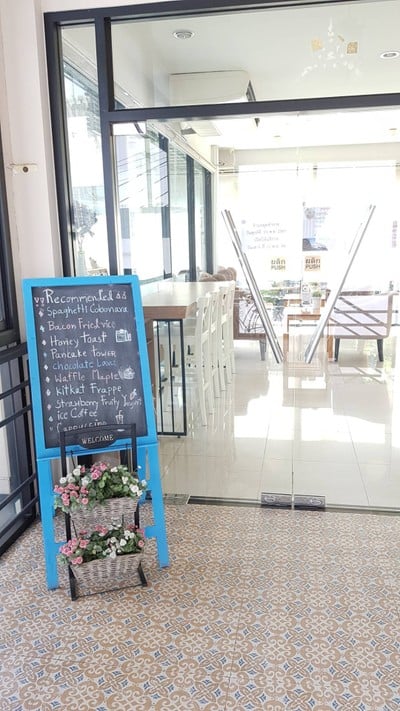 Recommended
Spaghetti Cabonara
Bacon Fried rice
Honey Toast
Pancake Tower
Chocolate Lava
Waffle Maple
Kitkat Frappe
Strawberry Fruity Yogurt
ice Coffee
Cappuccino
WELCOME
ผลัก
PUSH
ผลัก
PUSH